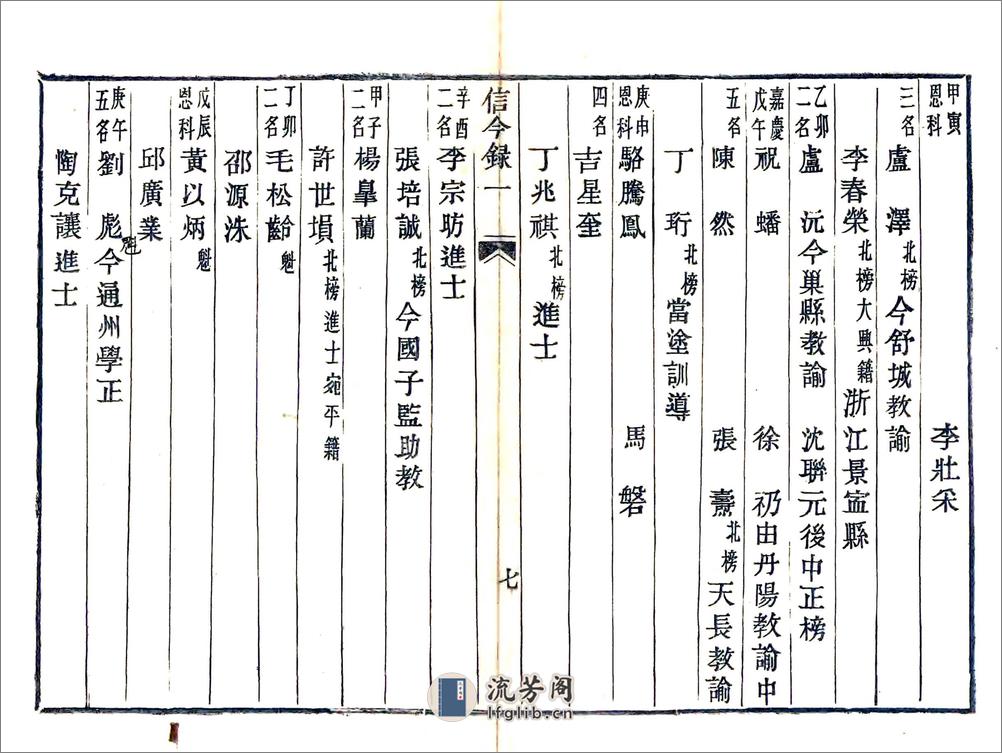 甲寅恩科 李壯采
三名 盧澤北榜今舒城教諭
李春榮北榜大興籍浙江景寍縣
乙卯二名 盧沅今巢縣教諭 沈聯元後中正榜
嘉慶戊午 祝蟠 徐礽由丹陽教諭中
五名 陳然 張燾北榜天長教諭
丁珩北榜當塗訓導
庚申恩科 駱騰鳳 馬磐
四名 吉星奎
丁兆祺北榜進士
信今録一 七
辛酉二名 李宗昉進士
張培誠北榜今國子監助教
甲子二名 楊臯蘭
許世塤北榜進士宛平籍
丁卯二名 毛松齡魁
邵源洙
戊辰恩科 黃以炳魁
邱廣業
庚午五名 劉彪魁今通州學正
陶克讓進士
流芳阁
lfglib.cn